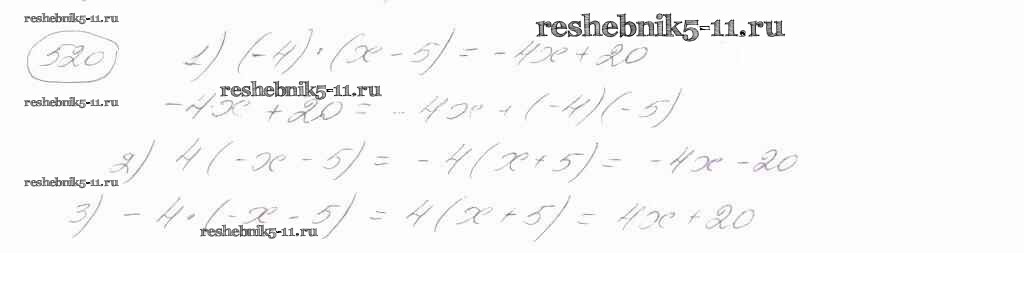 reshebnik5-11.ru
reshebnik5-11.ru
520 1) (-4)·(x-5) = -4x+20
reshebnik5-11.ru
reshebnik5-11.ru
-4x+20 = -4x+(-4)(-5)
2) 4(-x-5) = -4(x+5) = -4x-20
reshebnik5-11.ru
3) -4·(-x-5) = 4(x+5) = 4x+20
reshebnik5-11.ru